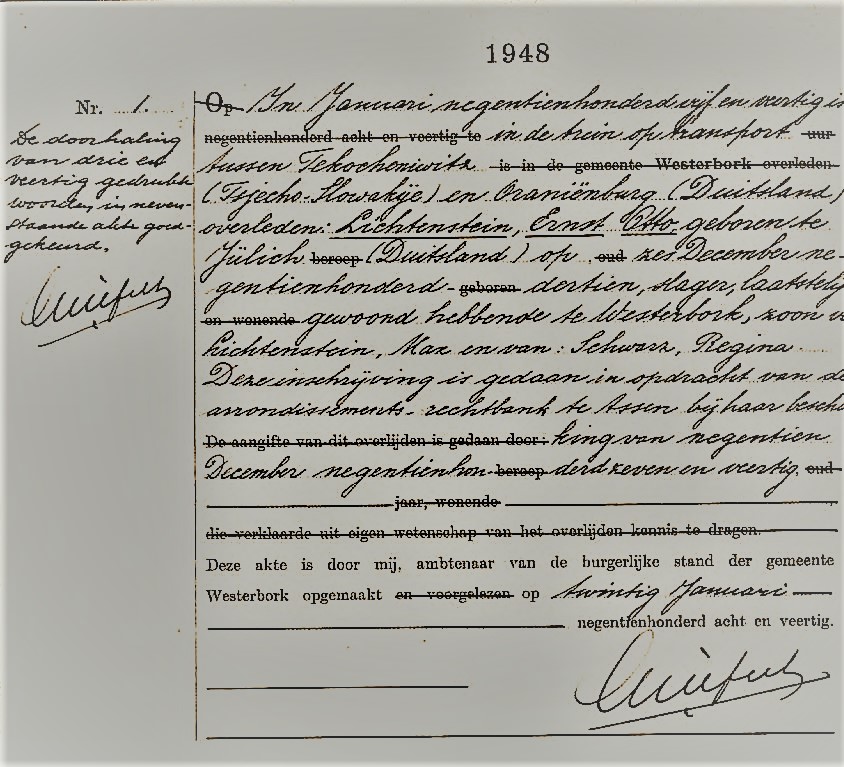 1948
Nr. 1.
De doorhaling
van drie en
veertig gedrukte
woorden in neven-
staande akte goed-
gekeurd.
Op In Januari negentienhonderd vijf en veertig is
negentienhonderd acht en veertig te in de trein op transport uur
tussen Tekocheniwitz is in de gemeente Westerbork overleden
(Tsjecho-Slowakije) en Oraniënburg (Duitsland)
overleden: Lichtenstein, Ernst Otto, geboren te
Jülich beroep (Duitsland) op oud zes December ne-
gentienhonderd geboren dertien, slager, laatstelijk
en wonende gewoond hebbende te Westerbork, zoon v
Lichtenstein, Max en van: Schwarz, Regina
Deze inschrijving is gedaan in opdracht van de
arrondissements-rechtbank te Assen bij haar beschik
De aangifte van dit overlijden is gedaan door: king van negentien
December negentienhon- beroep derd zeven en veertig, oud
jaar, wonende
die verklaarde uit eigen wetenschap van het overlijden kennis te dragen.
Deze akte is door mij, ambtenaar van de burgerlijke stand der gemeente
Westerbork opgemaakt en voorgelezen op twintig Januari
negentienhonderd acht en veertig.